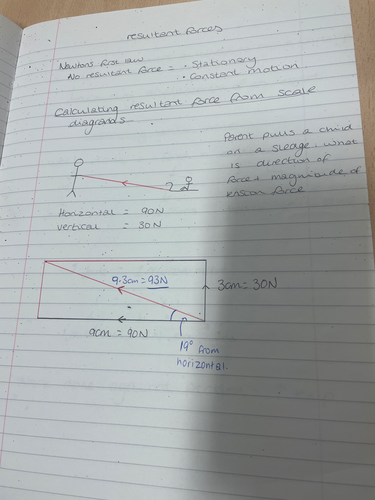 resultant forces
Newtons first law
No resultant force = · Stationary
· Constant motion
Calculating resultant force from scale
diagrams
Parent pulls a child
on a sleage. What
is direction of
force + magnitude of
tension force
Horizontal = 90N
vertical = 30N
9.3cm = 93N
3cm = 30N
9cm = 90N
19° from
horizontal.